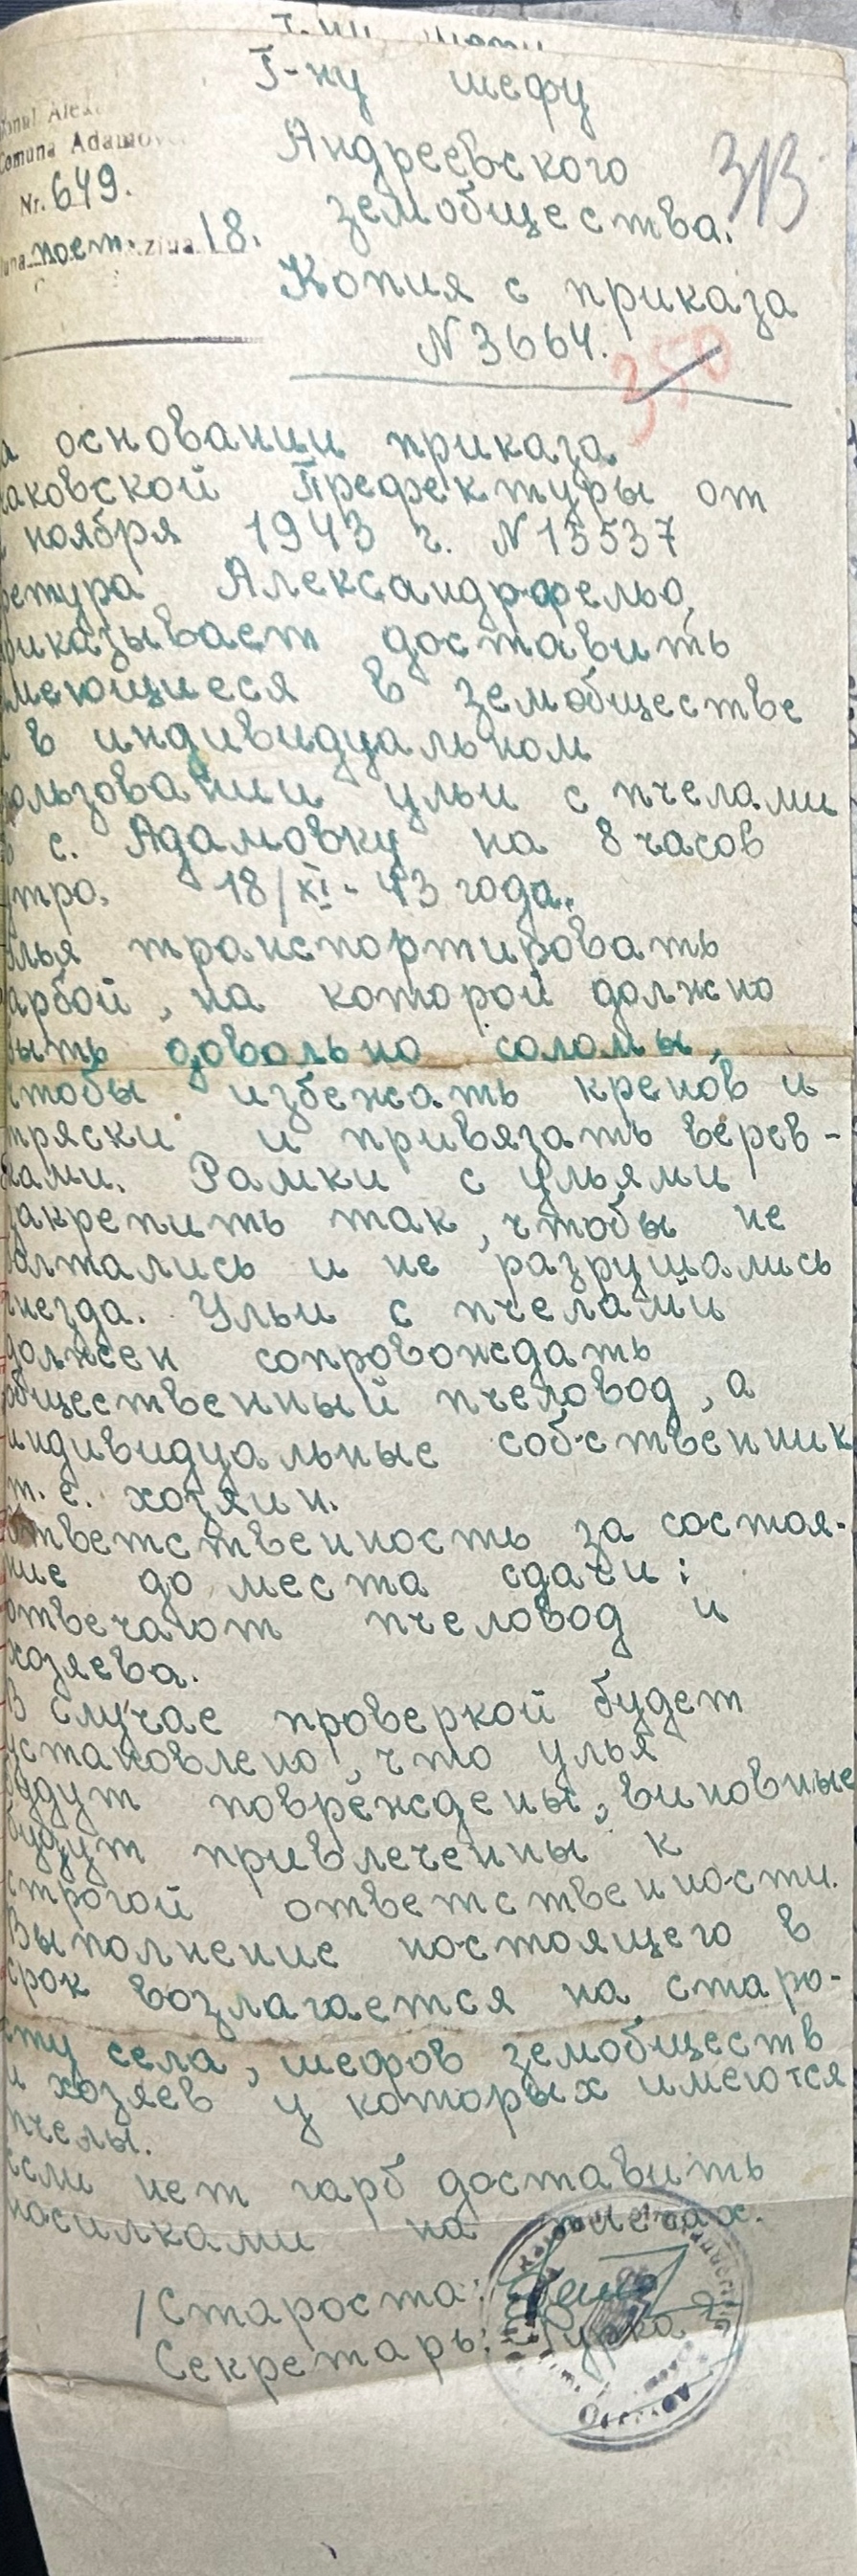 Г-ну шефу
Андреевского
земобщества.
Comuna Adamov
Nr. 649.
noem. ziua 18.
313
Копия с приказа
N 3664.
350
а основании приказа
аковской Префектуры от
ноября 1943 г. N 15537
ретура Александрфельд,
риказывает доставить
меющиеся в земобществе
и в индивидуальном
ользовании ульи с пчелами
в с. Адамовку на 8 часов
утра. 18/XI - 43 года.
улья транспортировать
гарбой, на которой должно
быть довольно соломы,
чтобы избежать кренов и
тряски и привязать верев-
ками. Рамки с ульями
закрепить так, чтобы не
болтались и не разрушались
гнезда. Ульи с пчелами
должен сопровождать
общественный пчеловод, а
индивидуальные собственник
т. е. хозяин.
ответственность за состоя-
ние до места сдачи:
отвечают пчеловод и
хозяева.
В случае проверкой будет
установлено, что улья
будут повреждены, виновные
будут привлеченны к
строгой ответственности.
Выполнениеностоящего в
срок возлагается на старо-
сту села, шефов земобществ
и хозяев у которых имеются
пчелы.
если нет гарб доставить
носилками на плечах.
/Староста:
Секретарь: Гурка